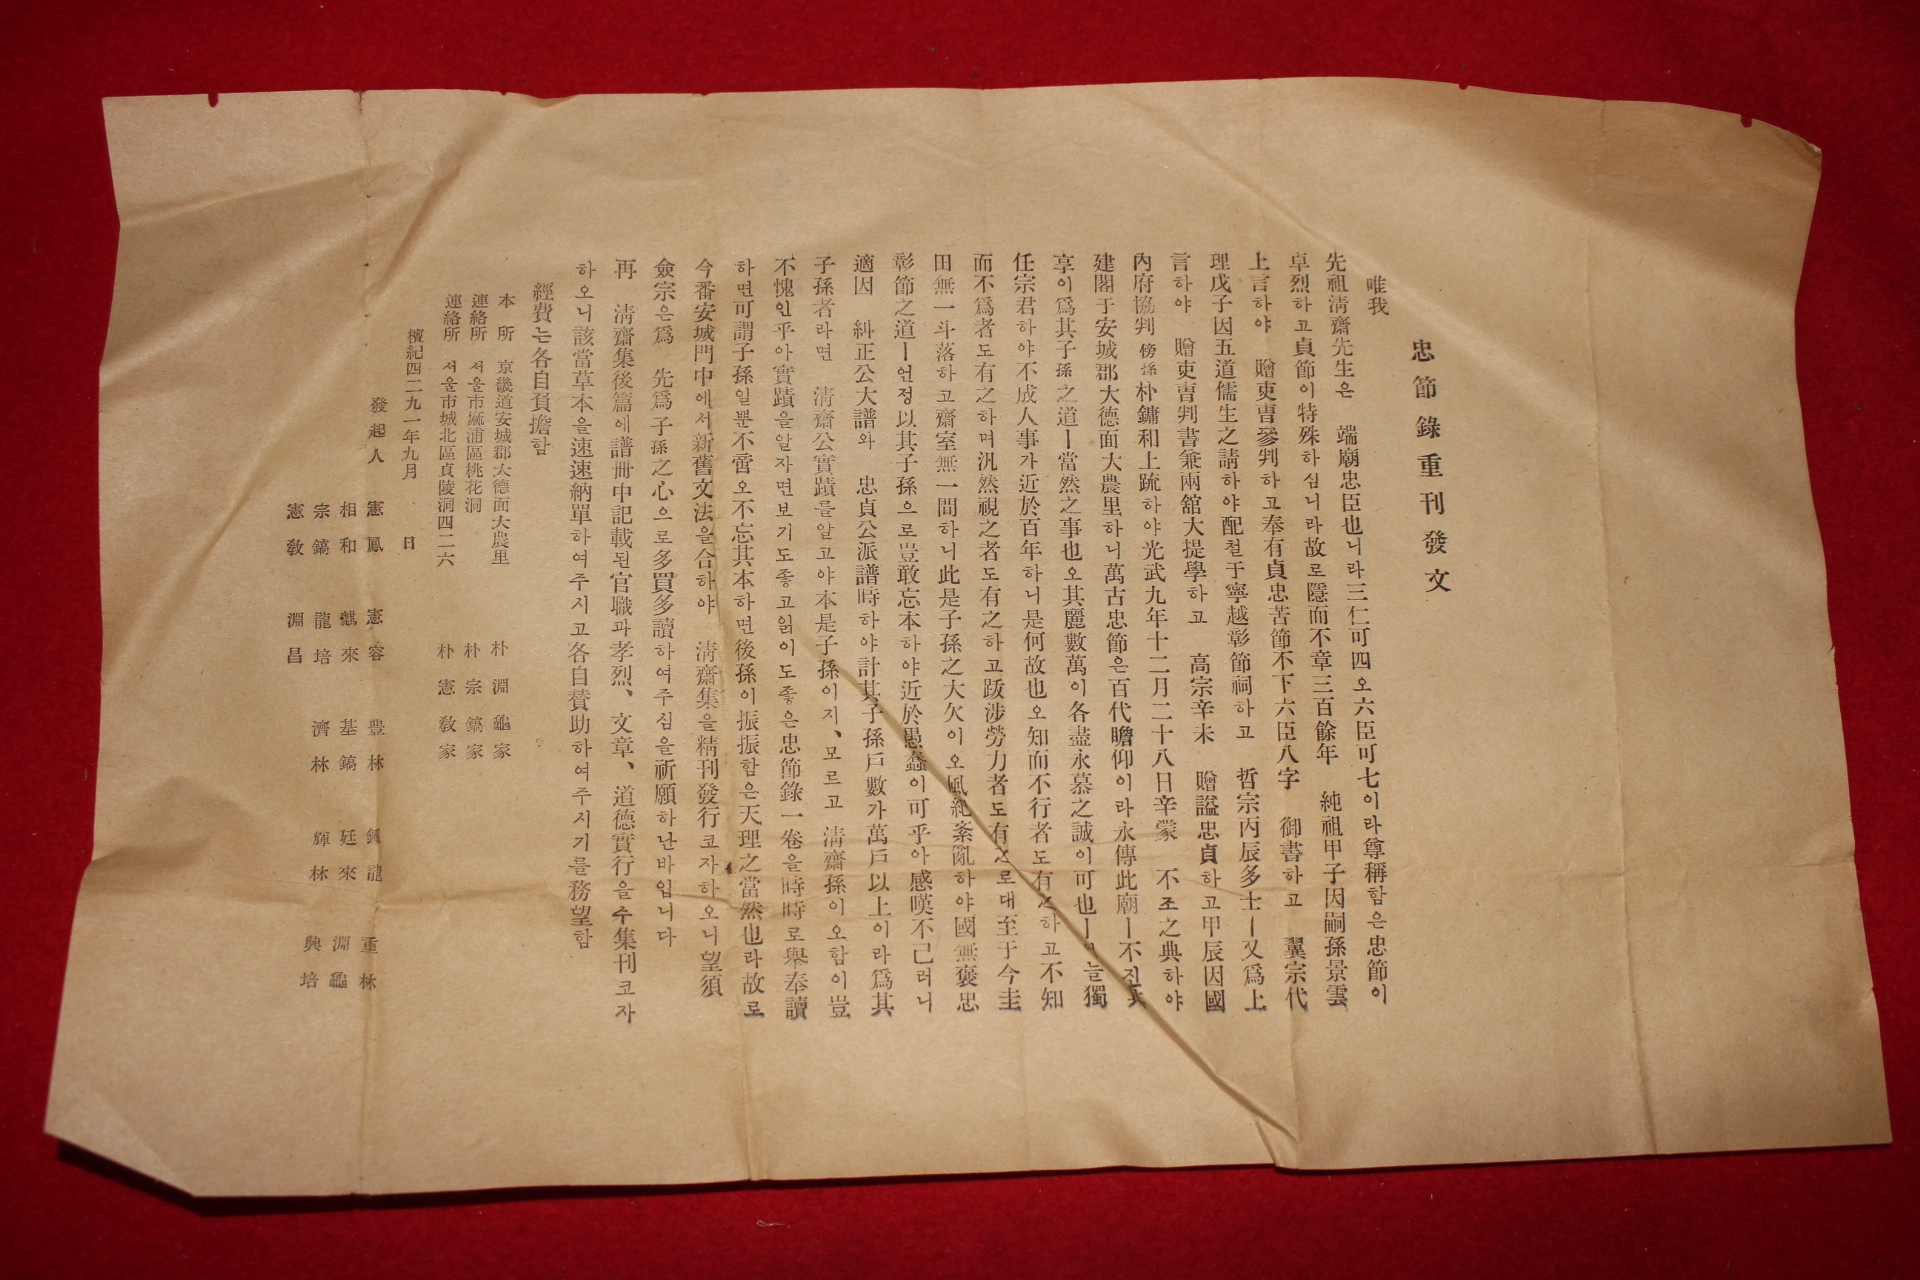 忠節錄重刊發文
唯我
先祖淸齋先生은 端廟忠臣也니라三仁可四오六臣可七이라尊稱함은忠節이
卓烈하고貞節이特殊하심니라故로隱而不章三百餘年 純祖甲子因嗣孫景雲
上言하야 贈吏曺參判하고奉有貞忠苦節不下六臣八字 御書하고 翼宗代
理戊子因五道儒生之請하야配철于寧越彰節祠하고 哲宗丙辰多士ㅣ又爲上
言하야 贈吏曺判書兼兩舘大提學하고 高宗辛未 贈謚忠貞하고甲辰因國
內府協判傍孫朴鏞和上䟽하야光武九年十二月二十八日辛蒙 不조之典하야
建閣于安城郡大德面大農里하니萬古忠節은百代瞻仰이라永傳此廟ㅣ不진
享이爲其子孫之道ㅣ當然之事也오其麗數萬이各盡永慕之誠이可也ㅣ늘獨
任宗君하야不成人事가近於百年하니是何故也오知而不行者도有之하고不知
而不爲者도有之하며汎然視之者도有之하고跋涉勞力者도有之로대至于今圭
田無一斗落하고齋室無一間하니此是子孫之大欠이오風紀紊亂하야國無褒忠
彰節之道ㅣ언졍以其子孫으로豈敢忘本하야近於愚蠢이可乎아感嘆不己러니
適因 糾正公大譜와 忠貞公派譜時하야計其子孫戶數가萬戶以上이라爲其
子孫者라면 淸齋公實蹟를알고야本是子孫이지、모르고 淸齋孫이오함이豈
不愧인乎아實蹟을알자면보기도좋고읽이도좋은忠節錄一卷을時時로擧奉讀
하면可謂子孫일뿐不啻오不忘其本하면後孫이振振함은天理之當然也라故로
今番安城門中에서新舊文法을合하야 淸齋集을精刊發行코자하오니望須
僉宗은爲 先爲子孫之心으로多買多讀하여주심을祈願하난바입니다
再 淸齋集後篇에譜冊中記載된官職과孝烈、文章、道德實行을수集刊코자
하오니該當草本을速速納單하여주시고各自賛助하여주시기를務望함
經費는各自負擔함
本 所 京畿道安城郡大德面大農里 朴淵龜家
連絡所 서울市麻浦區桃花洞 朴宗鎬家
連絡所 서울市城北區貞陵洞四二六 朴憲敎家
檀紀四二九一年九月 日
發起人 憲鳳 憲容 豊林 鍾龍 重林
相和 麒來 基鎬 廷來 淵龜
宗鎬 龍培 濟林 輝林 興培
憲敎 淵昌